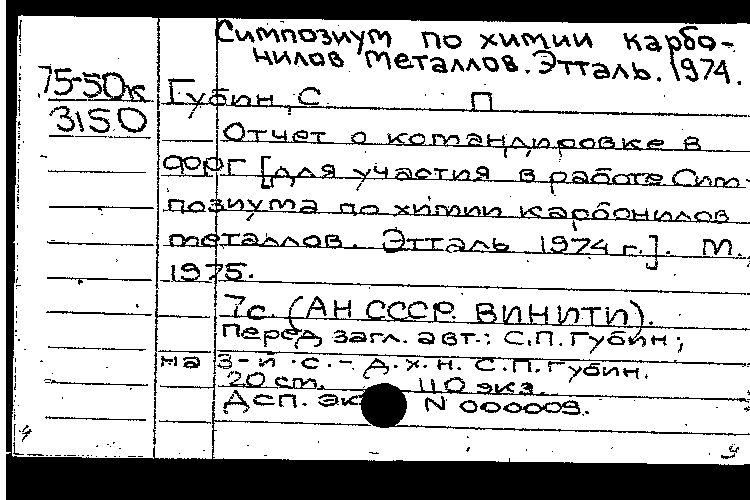 Симпозиум по химии карбо-
нилов металлов. Этталь. 1974.
75-50к
Губин, С П
3150
Отчет о командировке в
ФФРГ [для участия в работе Сим-
позиума по химии карбонилов
металлов. Этталь 1974 г.]. М.,
1975.
7с. (АН СССР. ВИНИТИ).
Перед загл. авт.: С.П. Губин;
на 3-й с. - д.х.н. С.П. Губин.
20 см. 110 экз.
ДСП. эк N 000009.